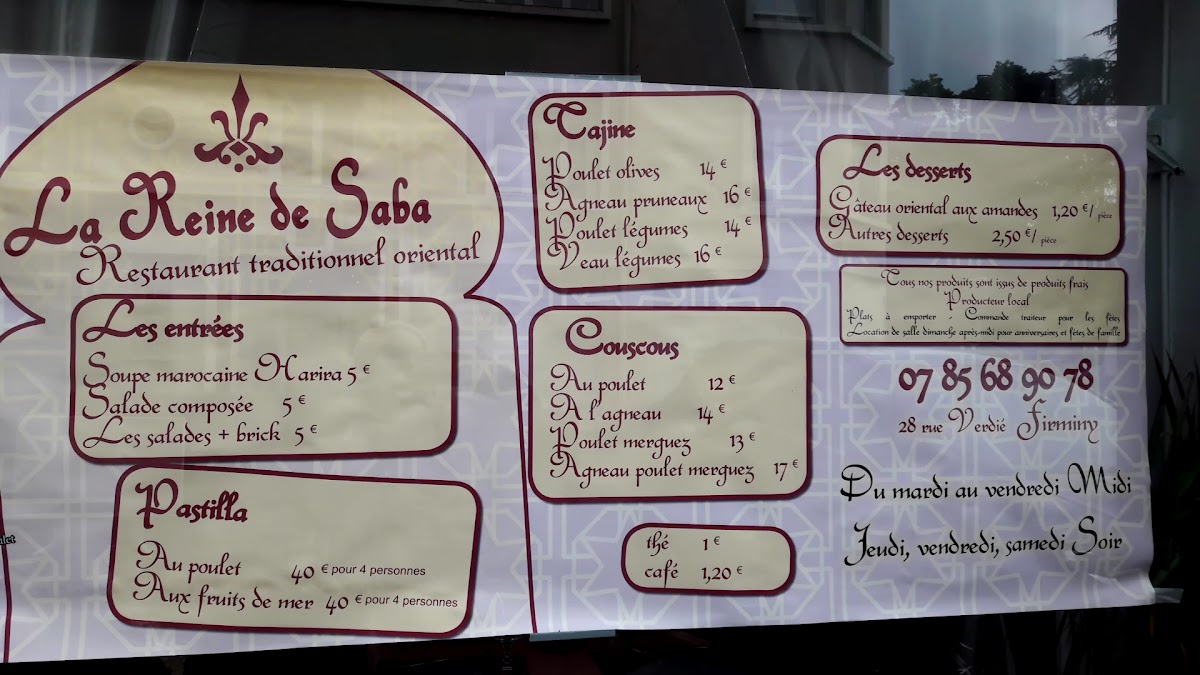 La Reine de Saba
Restaurant traditionnel oriental
Les entrées
Soupe marocaine Harira 5 €
Salade composée 5 €
Les salades + brick 5 €
Pastilla
Au poulet 40 € pour 4 personnes
Aux fruits de mer 40 € pour 4 personnes
Tajine
Poulet olives 14 €
Agneau pruneaux 16 €
Poulet légumes 14 €
Veau légumes 16 €
Couscous
Au poulet 12 €
A l'agneau 14 €
Poulet merguez 13 €
Agneau poulet merguez 17 €
thé 1 €
café 1,20 €
Les desserts
Gâteau oriental aux amandes 1,20 €/ pièce
Autres desserts 2,50 €/ pièce
Tous nos produits sont issus de produits frais
Producteur local
Plats à emporter - Commande traiteur pour les fêtes
Location de salle dimanche après-midi pour anniversaires et fêtes de famille
07 85 68 90 78
28 rue Verdié Firminy
Du mardi au vendredi Midi
Jeudi, vendredi, samedi Soir